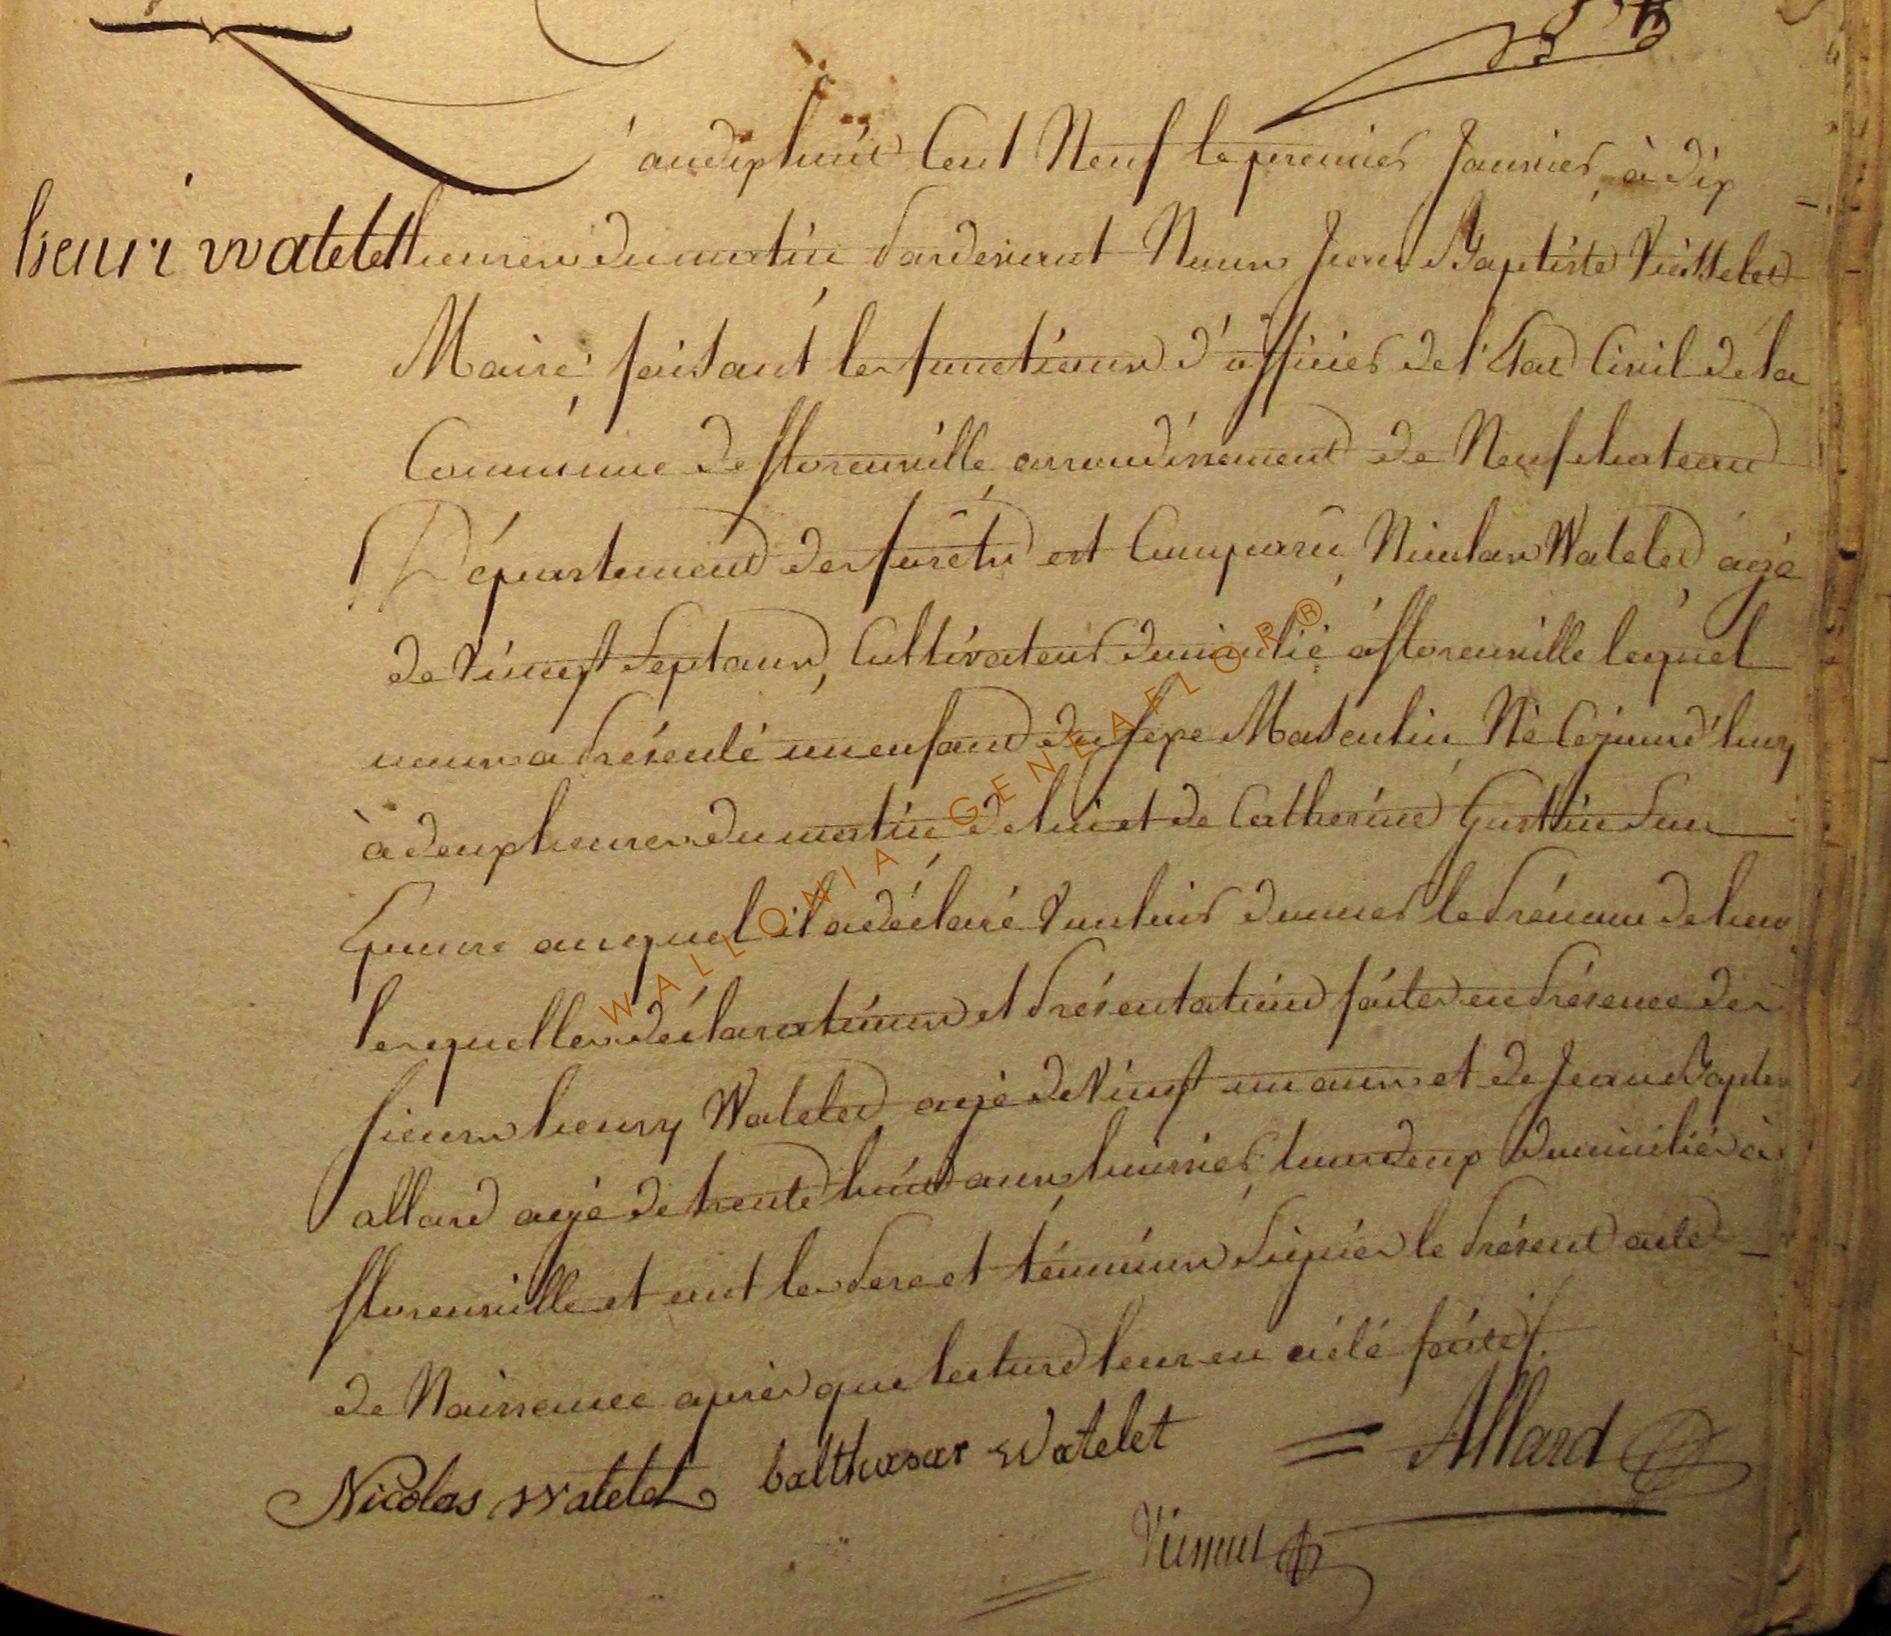 L'an dix huit Cent Neuf le premier Janvier, à dix
henri watelet
heures du matin Pardevant Nous Jean Baptiste
Maire, faisant les fonctions d'officier de l'Etat Civil de la
Commune de florenville, arrondissement de Neufchateau
Département des forêts est Comparu, Nicolas Watelet agé
de Vingt Sept ans, Cultivateur domicilié à florenville lequel
nous a Présenté un enfant du sexe Masculin, Né Cejourd'huy
à deux heures du matin de lui et de Catherine Gustin Son
Epouse auquel il a déclaré Vouloir donner le Prénom de henri
lesquelles déclarations et Présentation faites en Présence des
sieurs henry Watelet agé de Vingt un ans et de Jean Baptes
allard agé de trente huit ans huissier, tous deux domiciliés à
florenville et ont les Pere et témoins Signés le Présent acte
de Naissance après que lecture leur en a été faite
Nicolas watelet balthasar watelet = Allard
WALLONIA GENEAFLOR®